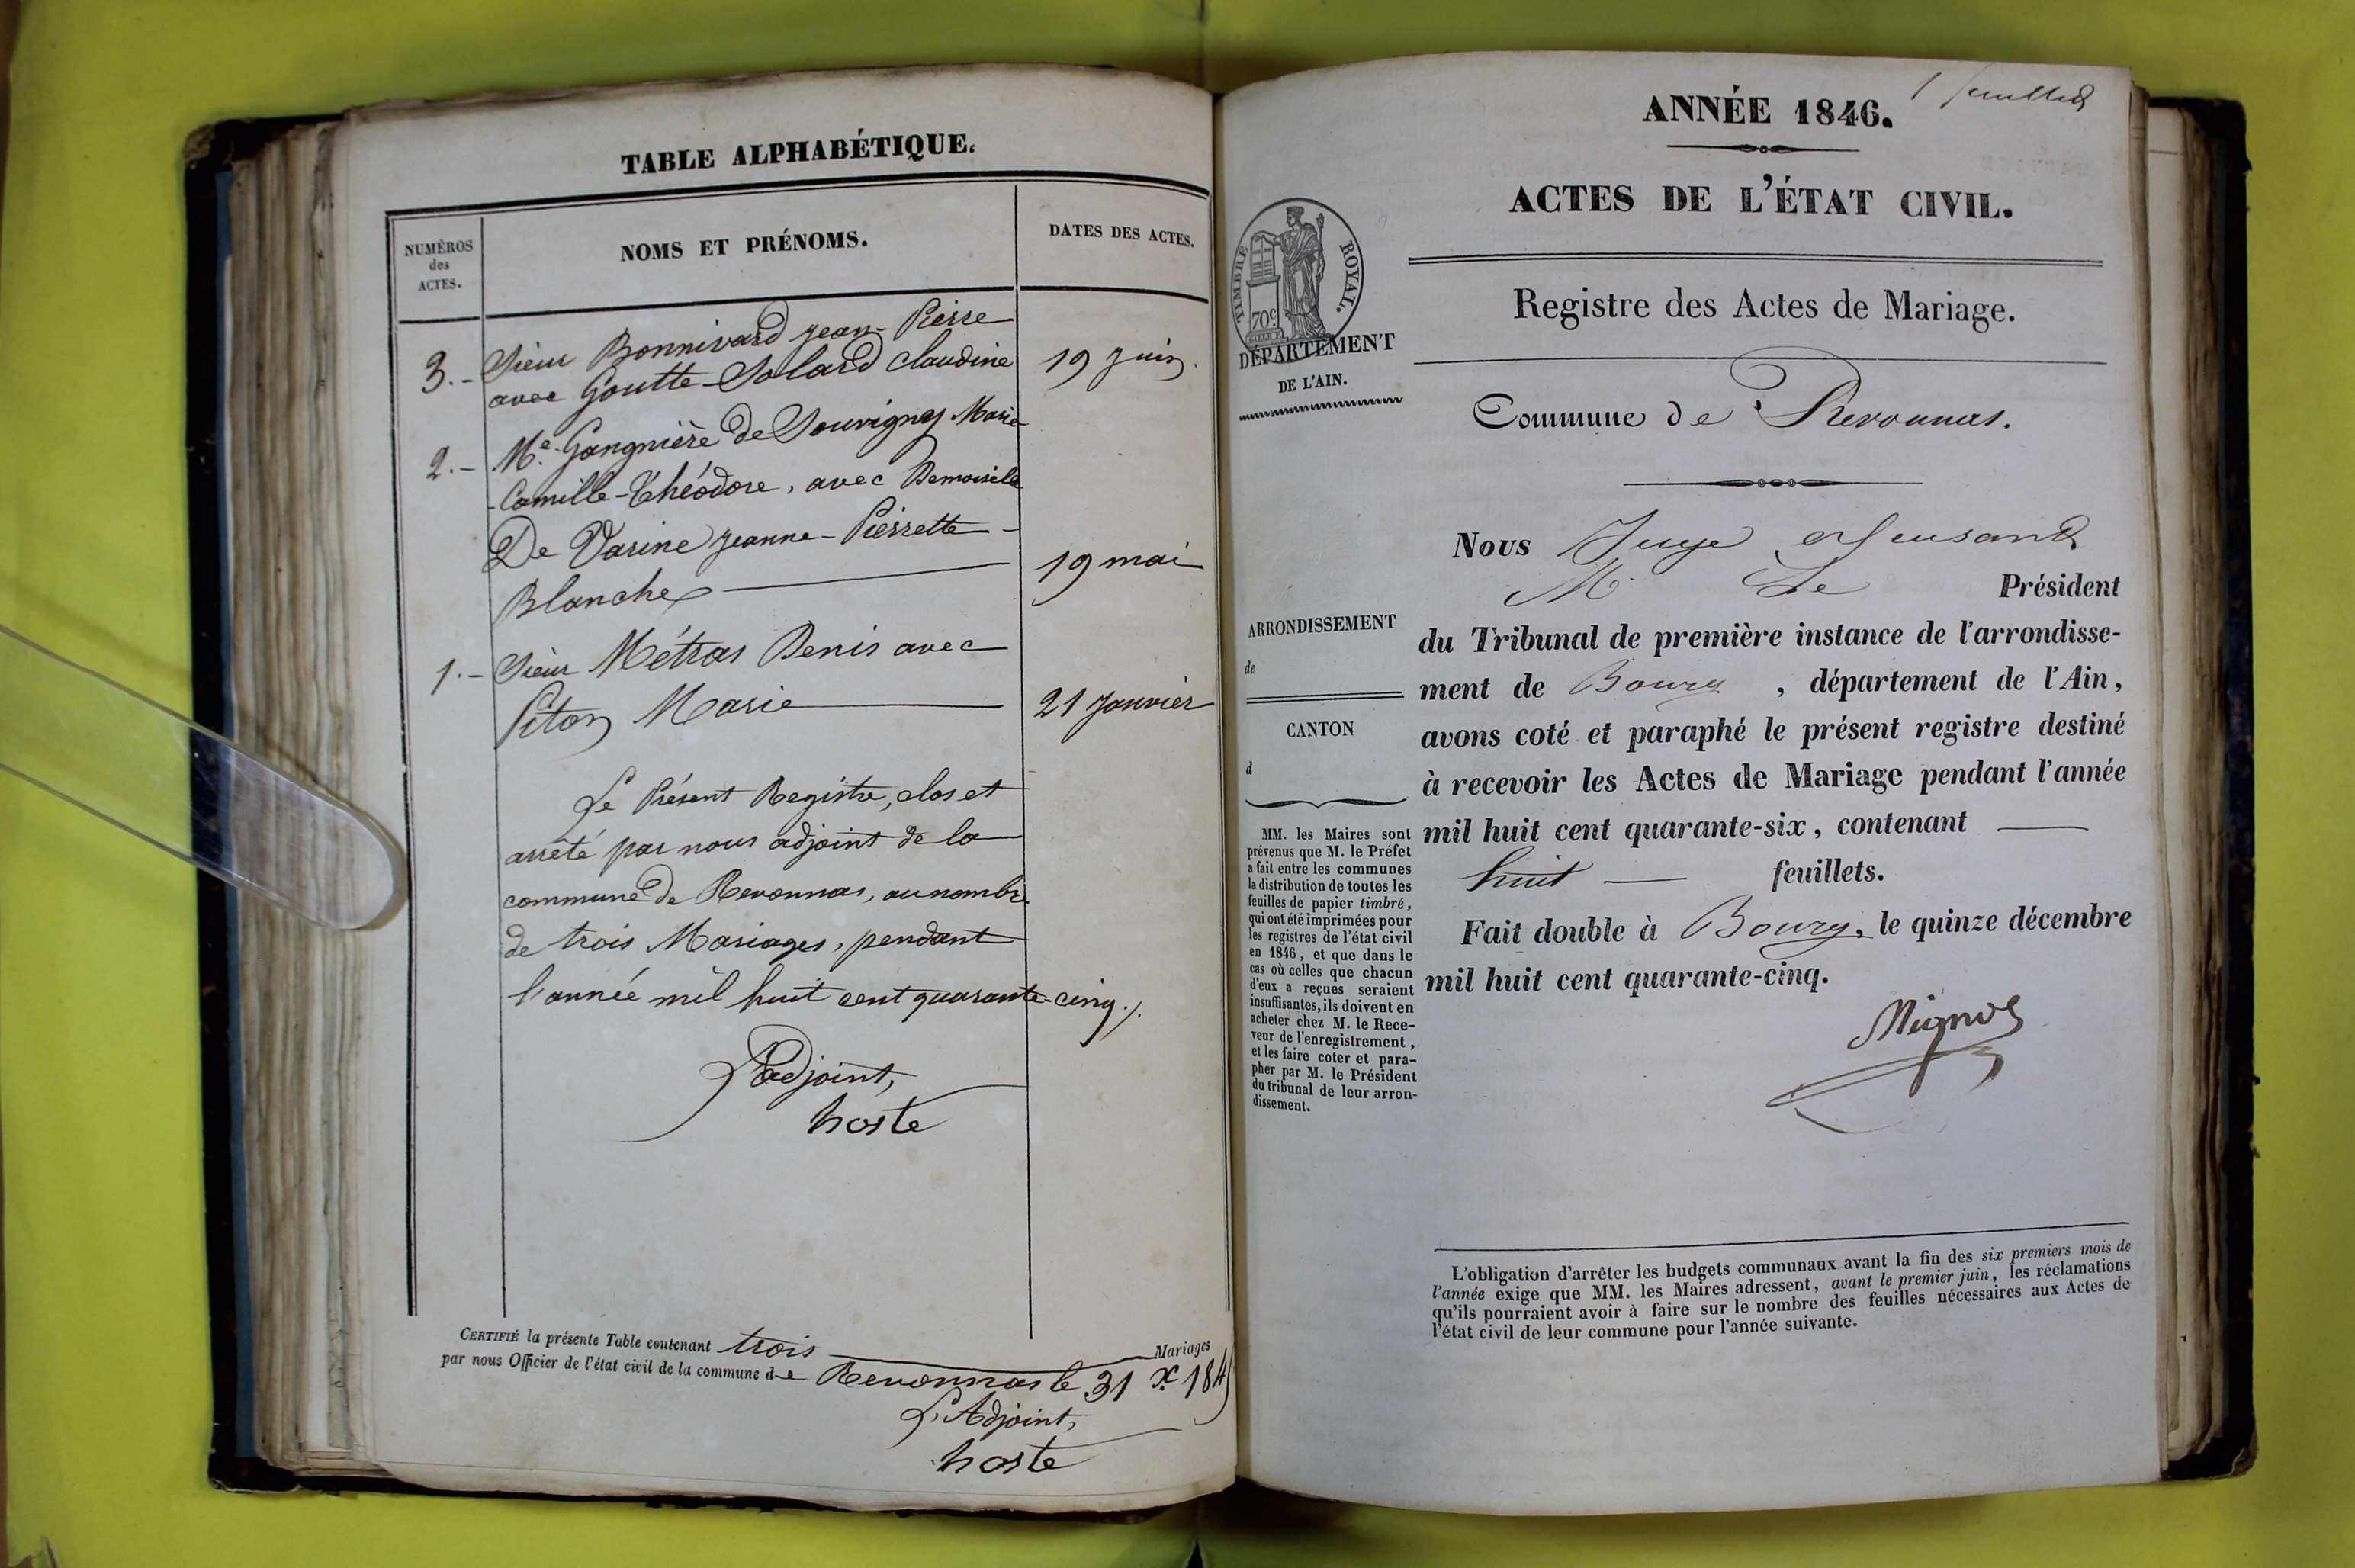 TABLE ALPHABÉTIQUE.
NUMÉROS
des
ACTES.
NOMS ET PRÉNOMS.
DATES DES ACTES.
3.- Sieur Bonnivard Jean-Pierre
avec Goutte-Solard Claudine 19 Juin.
2.- Me. Gangnière de Souvigny Marie
-Camille-Théodore, avec Demoiselle
De Varine Jeanne-Pierrette-
Blanche 19 mai
1.- Sieur Métras Denis avec
Piton Marie 21 Janvier
Le Présent Registre, clos et
arrêté par nous adjoint de la
commune de Revonnas, au nombre
de trois Mariages, pendant
l'année mil huit cent quarante-cinq./.
L'adjoint,
hoste
CERTIFIÉ la présente Table contenant trois Mariages
par nous Officier de l'état civil de la commune de Revonnas le 31 Xe 1845
L'Adjoint,
hoste
1 feuillet
ANNÉE 1846.
ACTES DE L'ÉTAT CIVIL.
TIMBRE ROYAL.
70c
DÉPARTEMENT
DE L'AIN.
Registre des Actes de Mariage.
Commune de Revonnas.
ARRONDISSEMENT
de
CANTON
d
MM. les Maires sont
prévenus que M. le Préfet
a fait entre les communes
la distribution de toutes les
feuilles de papier timbré,
qui ont été imprimées pour
les registres de l'état civil
en 1846, et que dans le
cas où celles que chacun
d'eux a reçues seraient
insuffisantes, ils doivent en
acheter chez M. le Rece-
veur de l'enregistrement,
et les faire coter et para-
pher par M. le Président
du tribunal de leur arron-
dissement.
Nous Juge
M. Le Président
du Tribunal de première instance de l'arrondisse-
ment de Bourg, département de l'Ain,
avons coté et paraphé le présent registre destiné
à recevoir les Actes de Mariage pendant l'année
mil huit cent quarante-six, contenant
huit feuillets.
Fait double à Bourg, le quinze décembre
mil huit cent quarante-cinq.
L'obligation d'arrêter les budgets communaux avant la fin des six premiers mois de
l'année exige que MM. les Maires adressent, avant le premier juin, les réclamations
qu'ils pourraient avoir à faire sur le nombre des feuilles nécessaires aux Actes de
l'état civil de leur commune pour l'année suivante.